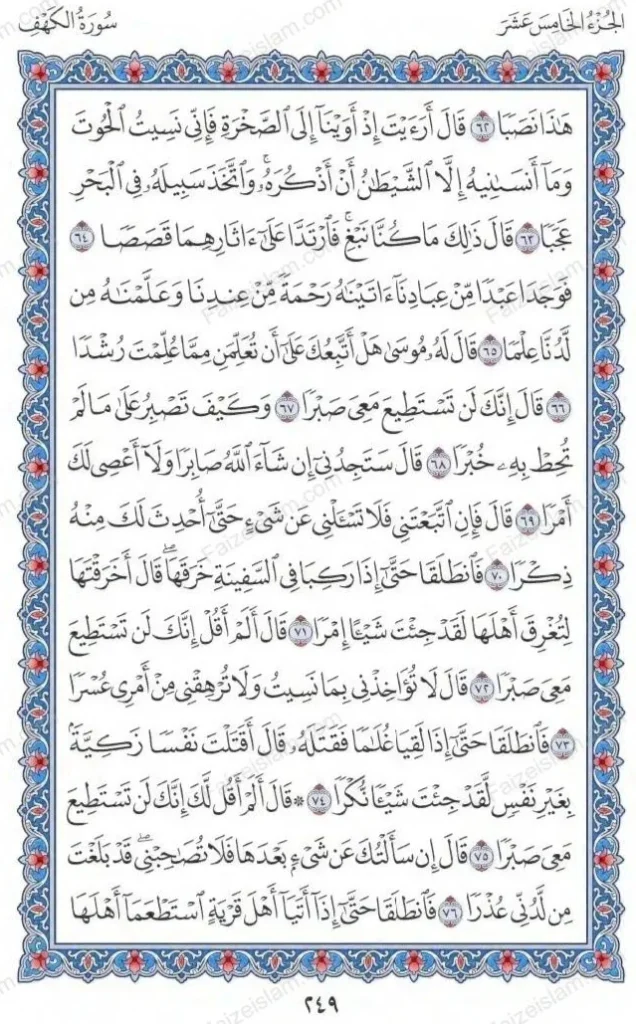 الجُزْءُ الخَامِسَ عَشَرَ
سُورَةُ الكَهْفِ
هَٰذَا نَصَبًا ٦٢ قَالَ أَرَءَيْتَ إِذْ أَوَيْنَآ إِلَى ٱلصَّخْرَةِ فَإِنِّى نَسِيتُ ٱلْحُوتَ
وَمَآ أَنسَىٰنِيهُ إِلَّا ٱلشَّيْطَٰنُ أَنْ أَذْكُرَهُۥ ۚ وَٱتَّخَذَ سَبِيلَهُۥ فِى ٱلْبَحْرِ
عَجَبًا ٦٣ قَالَ ذَٰلِكَ مَا كُنَّا نَبْغِ ۚ فَٱرْتَدَّا عَلَىٰٓ ءَاثَارِهِمَا قَصَصًا ٦٤
فَوَجَدَا عَبْدًا مِّنْ عِبَادِنَآ ءَاتَيْنَٰهُ رَحْمَةً مِّنْ عِندِنَا وَعَلَّمْنَٰهُ مِن
لَّدُنَّا عِلْمًا ٦٥ قَالَ لَهُۥ مُوسَىٰ هَلْ أَتَّبِعُكَ عَلَىٰٓ أَن تُعَلِّمَنِ مِمَّا عُلِّمْتَ رُشْدًا
٦٦ قَالَ إِنَّكَ لَن تَسْتَطِيعَ مَعِىَ صَبْرًا ٦٧ وَكَيْفَ تَصْبِرُ عَلَىٰ مَا لَمْ
تُحِطْ بِهِۦ خُبْرًا ٦٨ قَالَ سَتَجِدُنِىٓ إِن شَآءَ ٱللَّهُ صَابِرًا وَلَآ أَعْصِى لَكَ
أَمْرًا ٦٩ قَالَ فَإِنِ ٱتَّبَعْتَنِى فَلَا تَسْـَٔلْنِى عَن شَىْءٍ حَتَّىٰٓ أُحْدِثَ لَكَ مِنْهُ
ذِكْرًا ٧٠ فَٱنطَلَقَا حَتَّىٰٓ إِذَا رَكِبَا فِى ٱلسَّفِينَةِ خَرَقَهَا ۖ قَالَ أَخَرَقْتَهَا
لِتُغْرِقَ أَهْلَهَا لَقَدْ جِئْتَ شَيْـًٔا إِمْرًا ٧١ قَالَ أَلَمْ أَقُلْ إِنَّكَ لَن تَسْتَطِيعَ
مَعِىَ صَبْرًا ٧٢ قَالَ لَا تُؤَاخِذْنِى بِمَا نَسِيتُ وَلَا تُرْهِقْنِى مِنْ أَمْرِى عُسْرًا
٧٣ فَٱنطَلَقَا حَتَّىٰٓ إِذَا لَقِيَا غُلَٰمًا فَقَتَلَهُۥ قَالَ أَقَتَلْتَ نَفْسًا زَكِيَّةًۢ
بِغَيْرِ نَفْسٍ لَّقَدْ جِئْتَ شَيْـًٔا نُّكْرًا ٧٤ ۞ قَالَ أَلَمْ أَقُل لَّكَ إِنَّكَ لَن تَسْتَطِيعَ
مَعِىَ صَبْرًا ٧٥ قَالَ إِن سَأَلْتُكَ عَن شَىْءٍۭ بَعْدَهَا فَلَا تُصَٰحِبْنِى ۖ قَدْ بَلَغْتَ
مِن لَّدُنِّى عُذْرًا ٧٦ فَٱنطَلَقَا حَتَّىٰٓ إِذَآ أَتَيَآ أَهْلَ قَرْيَةٍ ٱسْتَطْعَمَآ أَهْلَهَا
٢٤٩
Faizeislam.com